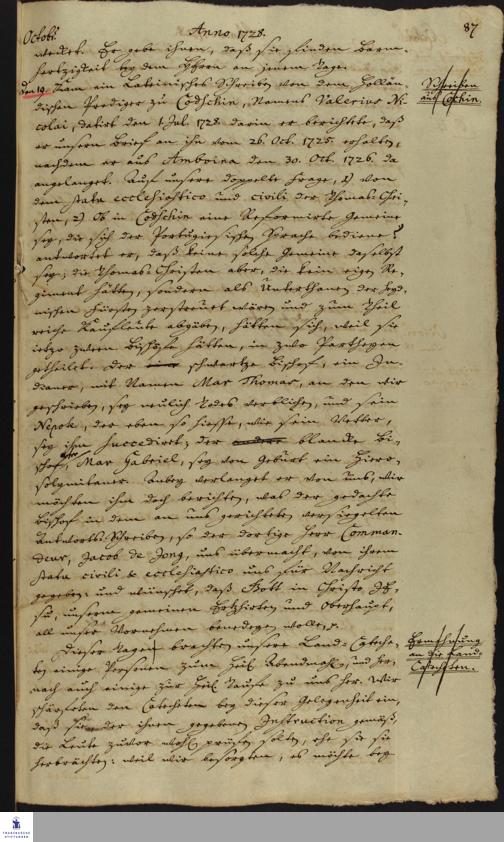 Octobr. Anno 1728. 87
wecket. Er gebe ihnen, daß sie finden Barm-
hertzigkeit bey dem HErrn an jenem Tage.
Den 19. Kam ein Lateinisches Schreiben von dem Hollän-
dischen Prediger zu Codschin, Namens Valerius Ni-
colai, datirt den 1. Jul. 1728. darin er berichtete, daß
er unsern Brief an ihn vom 26. Oct. 1725. erhalten,
nachdem er aus Amboina den 30. Oct. 1726. da
angelanget. Auf unsere doppelte Frage, 1) von
dem statu ecclesiastico und civili der Thomas-Chri-
sten, 2) Ob in Codschin eine Reformirte Gemeine
sey, die sich der Portugiesischen Sprache bediene?
antwortet er, daß keine solche Gemeine daselbst
sey; die Thomas-Christen aber, die kein eigen Re-
giment hätten, sondern als Unterthanen der Heyd-
nischen Fürsten zerstreuet wären und zum Theil
reiche Kaufleute abgäben, hätten sich, weil sie
ietzo zween Bischöfe hätten, in zwo Partheyen
getheilet. Der schwartze Bischof, ein In-
dianer, mit Namen Mar Thomas, an den wir
geschrieben, sey neulich Todes verblichen, und sein
Nepote, der eben so heisse, wie sein Vetter,
sey ihm succedirt; der andere blancke Bi-
schof, Mar Gabriel, sey von Geburt ein Hiero-
solymitaner. Anbey verlanget er von uns, wir
möchten ihm doch berichten, was der gedachte
Bischof in dem an uns gerichteten versiegelten
Antworts-Schreiben, so der dortige Herr Comman-
deur, Jacob de Jong, uns übermacht, von ihrem
statu civili & ecclesiastico uns für Nachricht
gegeben: und wünschet, daß Gott in Christo JE-
su, unserm gemeinen Ertzhirten und Oberhaupt,
all unser Vornehmen benedeyen wolle.
Dieser Tagen brachten unsere Land-Cateche-
ten einige Personen zum Heil. Abendmahl, und her-
nach auch einige zur Heil. Taufe zu uns her. Wir
schärfeten den Catecheten bey dieser Gelegenheit ein,
daß sie der ihnen gegebenen Instruction gemäß,
die Leute zuvor wohl prüfen solten, ehe sie sie
herbrächten: weil wir besorgten, es möchte bey
Schreiben
aus Cochin.
Ermahnung
an die Land-
Catecheten.
FRANCKESCHE
STIFTUNGEN